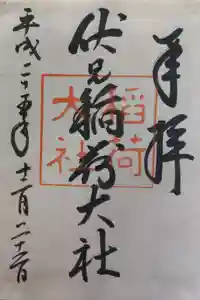 奉拝
伏見稲荷大社
稲荷
大社
平成二十五年十一月二十二日